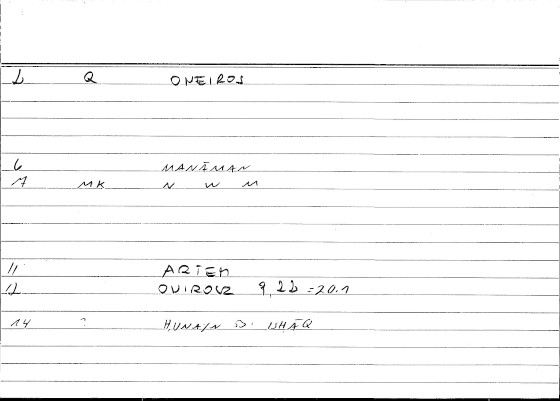 2 Q ONEIROS
6 MANĀMAN
7 MK N W M
11 ARTEM
12 OVIROUZ 9,22 =20.1
14 ? ḤUNAIN B. ISḤĀQ